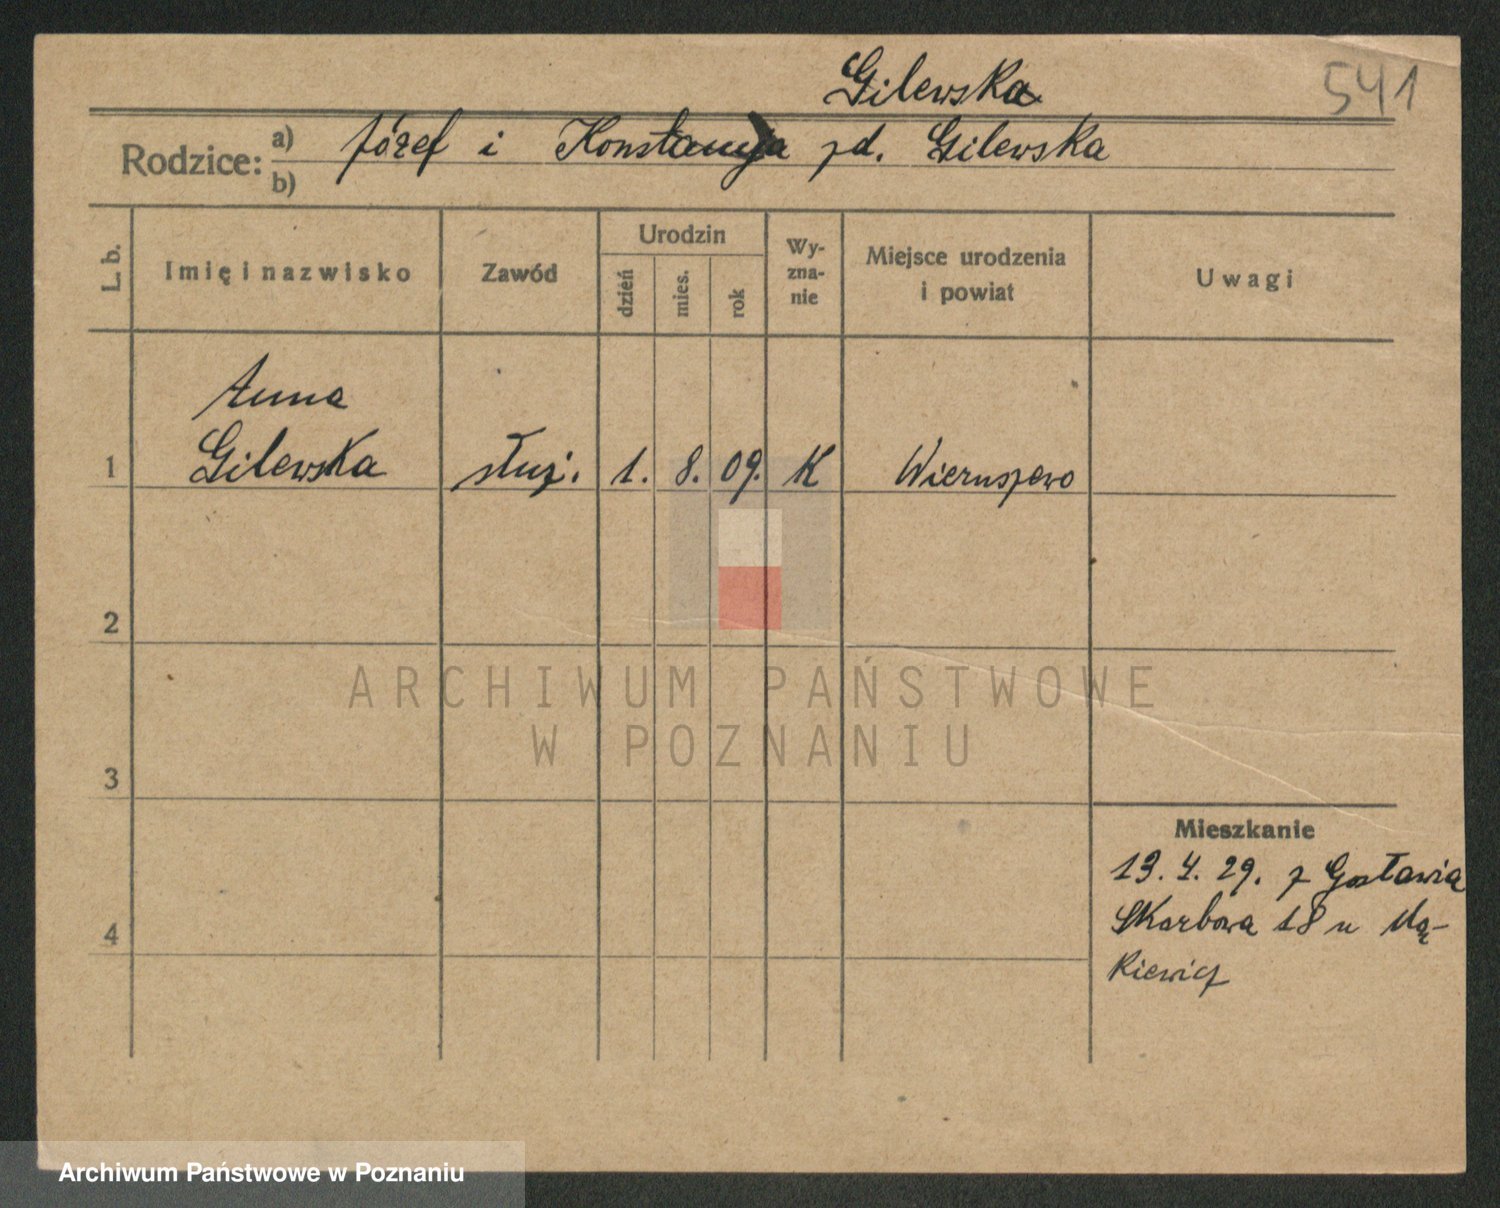 Gilewska
541
Rodzice: a) Józef i Konstancja zd. Gilewska
b)
L. b.
Imię i nazwisko
Zawód
Urodzin
dzień
mies.
rok
Wy-
zna-
nie
Miejsce urodzenia
i powiat
Uwagi
Anna
1 Gilewska służ. 1. 8. 09. K Wieruszewo
2
ARCHIWUM PAŃSTWOWE
W POZNANIU
3
Mieszkanie
13. 4. 29. z Gosławia
Skarbowa 18 u
4
kiewicz
Archiwum Państwowe w Poznaniu